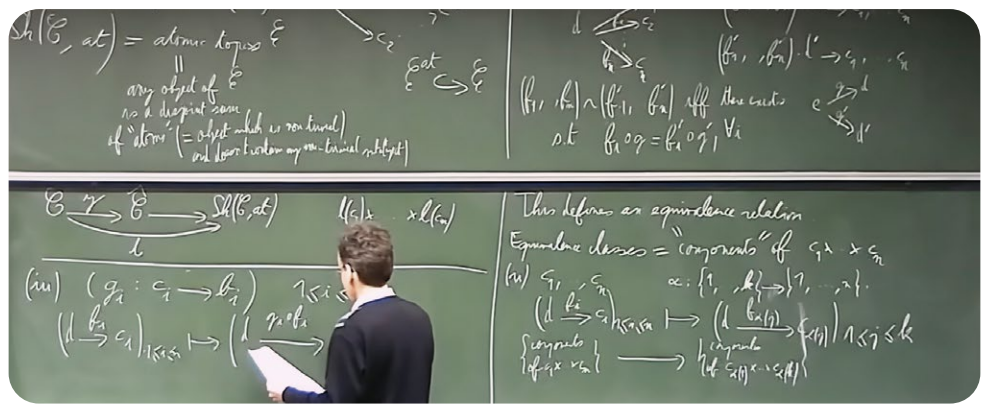 Sh(𝒞, at) = atomic topos ℰ
||
any object of ℰ
is a disjoint sum
of "atoms" (= object which is non trivial
and doesn't contain any non-trivial subobject)
→ c₂
ℰ^at ↪ ℰ
d
(f'₁, , f'ₙ) · d' → c₁, … cₙ
(f₁, , fₙ) ~ (f'₁, f'ₙ) iff there exists
e g→ d
g'→ d'
s.t fᵢ∘g = f'ᵢ∘g', ∀i
𝒞 y→ 𝒞̂ → Sh(𝒞, at)
l
l(c₁)× … ×l(cₙ)
(iii) (gᵢ : cᵢ → bᵢ) 1≤i≤
(d fᵢ→ cᵢ)₁≤ᵢ≤ₙ ↦ (d gᵢ∘fᵢ→
This defines an equivalence relation
Equivalence classes = "components" of c₁× ·· × cₙ
(iv) c₁, , cₙ α: {1, , k} → {1, …, n}.
(d fᵢ→ cᵢ)₁≤ᵢ≤ₙ ↦ (d f_α(j)→ c_α(j)) 1≤j≤k
{components of c₁× ··×cₙ} → {components of c_α(1)× ··×c_α(k)}